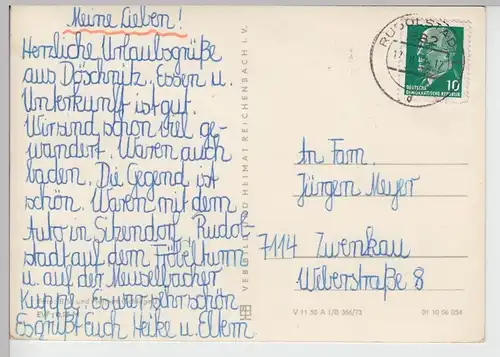 Meine Lieben!
Herzliche Urlaubsgrüße
aus Döschnitz. Essen u.
Unterkunft ist gut.
Wir sind schon viel ge-
wandert. Waren auch
baden. Die Gegend ist
schön. Waren mit dem
Auto in Sitzendorf, Rudol-
stadt auf dem Fröbelturm
u. auf der Meuselbacher
Kuppe, es war sehr schön
Es grüßt Euch Heike u. Eltern
EVP
VEB BILD UND HEIMAT REICHENBACH I. V.
RUDOLSTADT
82
d
DEUTSCHE
DEMOKRATISCHE REPUBLIK
10
An Fam.
Jürgen Meyer
7114 Zwenkau
Weberstraße 8
V 11 50 A 1/B 366/73
01 10 06 054